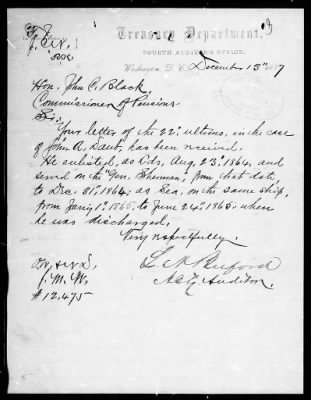 Treasury Department,
FOURTH AUDITOR'S OFFICE,
Washington, D. C., December 13" 1887
Hon. John C. Black,
Commissioner of Pensions
Sir:
Your letter of the 22" ultimo, in the case
of John R. Daub, has been received.
He enlisted, as Lds, Aug, 23" 1864, and
served on the "Gen. Sherman," from that date,
to Dec. 31" 1864; as Sea, on the same ship,
from Jany, 1" 1865, to June 24" 1865; when
he was discharged.
Very respectfully,
Actg Auditor.
J. M. W.
# 12,475